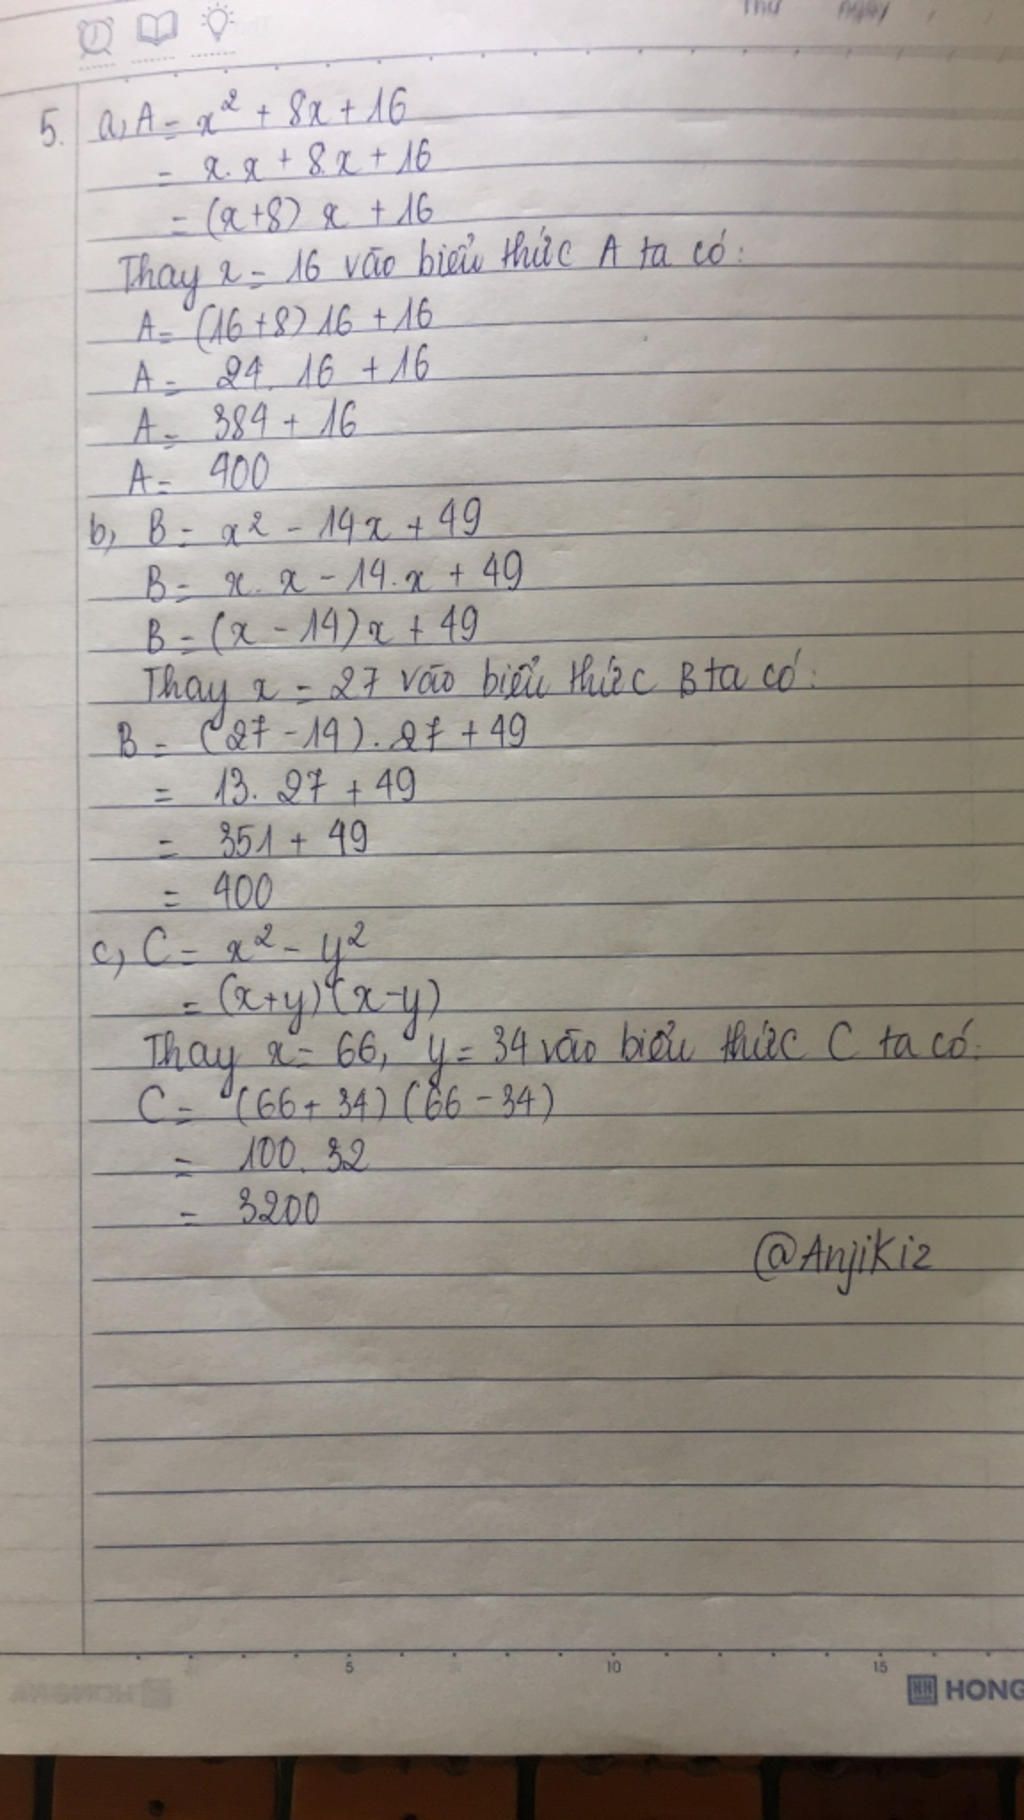 Thứ Ngày
5. a, A = x² + 8x + 16
= x. x + 8.x + 16
= (x+8) x + 16
Thay x = 16 vào biểu thức A ta có:
A = (16+8) 16 + 16
A = 24. 16 + 16
A = 384 + 16
A = 400
b, B = x² - 14x + 49
B = x. x - 14. x + 49
B = (x - 14)x + 49
Thay x = 27 vào biểu thức B ta có:
B = (27 - 14). 27 + 49
= 13. 27 + 49
= 351 + 49
= 400
c, C = x² - y²
= (x+y) (x-y)
Thay x = 66, y = 34 vào biểu thức C ta có:
C = (66 + 34) (66 - 34)
= 100. 32
= 3200
@Anjikiz
5 10 15
HONG